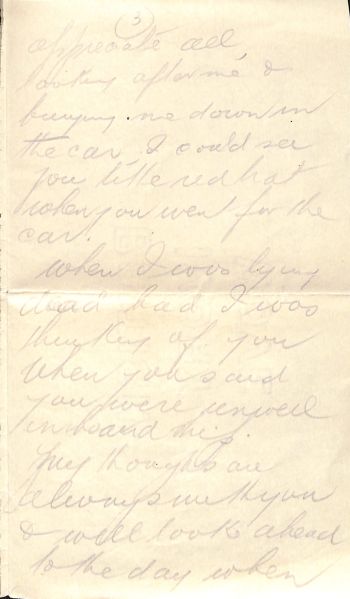 (3)
appreciate all
looking after me &
buying me down in
the car, I could see
you little red hat
when you went for the
car.
when I was lying
dead had I was
thinking of you
When you said
you were unwell
my thoughts are
always with you
& will look ahead
to the day when